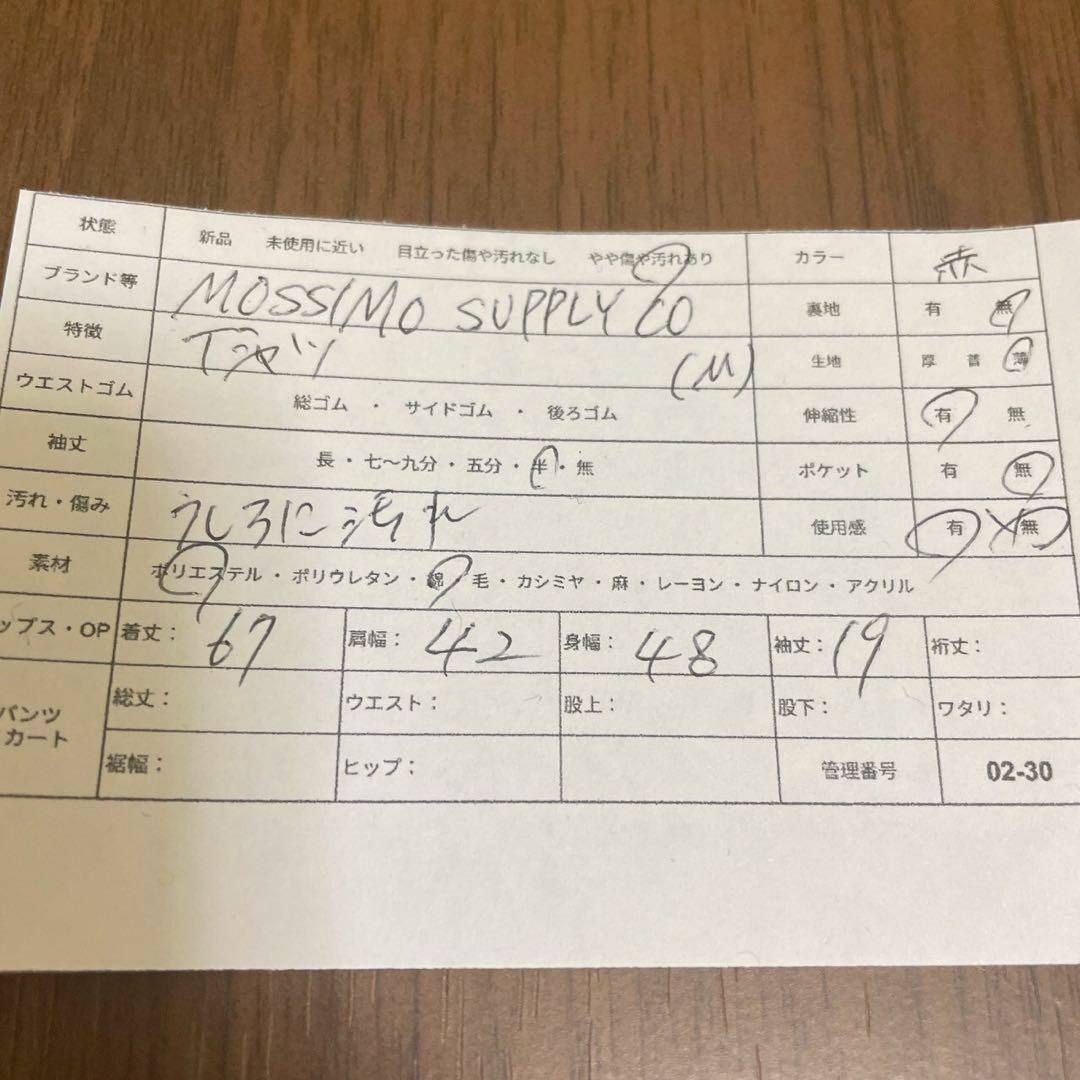 状態 新品 未使用に近い 目立った傷や汚れなし やや傷や汚れあり カラー 赤
ブランド等 MOSSIMO SUPPLY CO 裏地 有 無
特徴 Tシャツ (M) 生地 厚 普 薄
ウエストゴム 総ゴム ・ サイドゴム ・ 後ろゴム 伸縮性 有 無
袖丈 長・七〜九分・五分・半・無 ポケット 有 無
汚れ・傷み うしろに汚れ 使用感 有 無
素材 ポリエステル・ポリウレタン・綿・毛・カシミヤ・麻・レーヨン・ナイロン・アクリル
ップス・OP 着丈： 67 肩幅： 42 身幅： 48 袖丈： 19 裄丈：
パンツ 総丈： ウエスト： 股上： 股下： ワタリ：
カート 裾幅： ヒップ： 管理番号 02-30